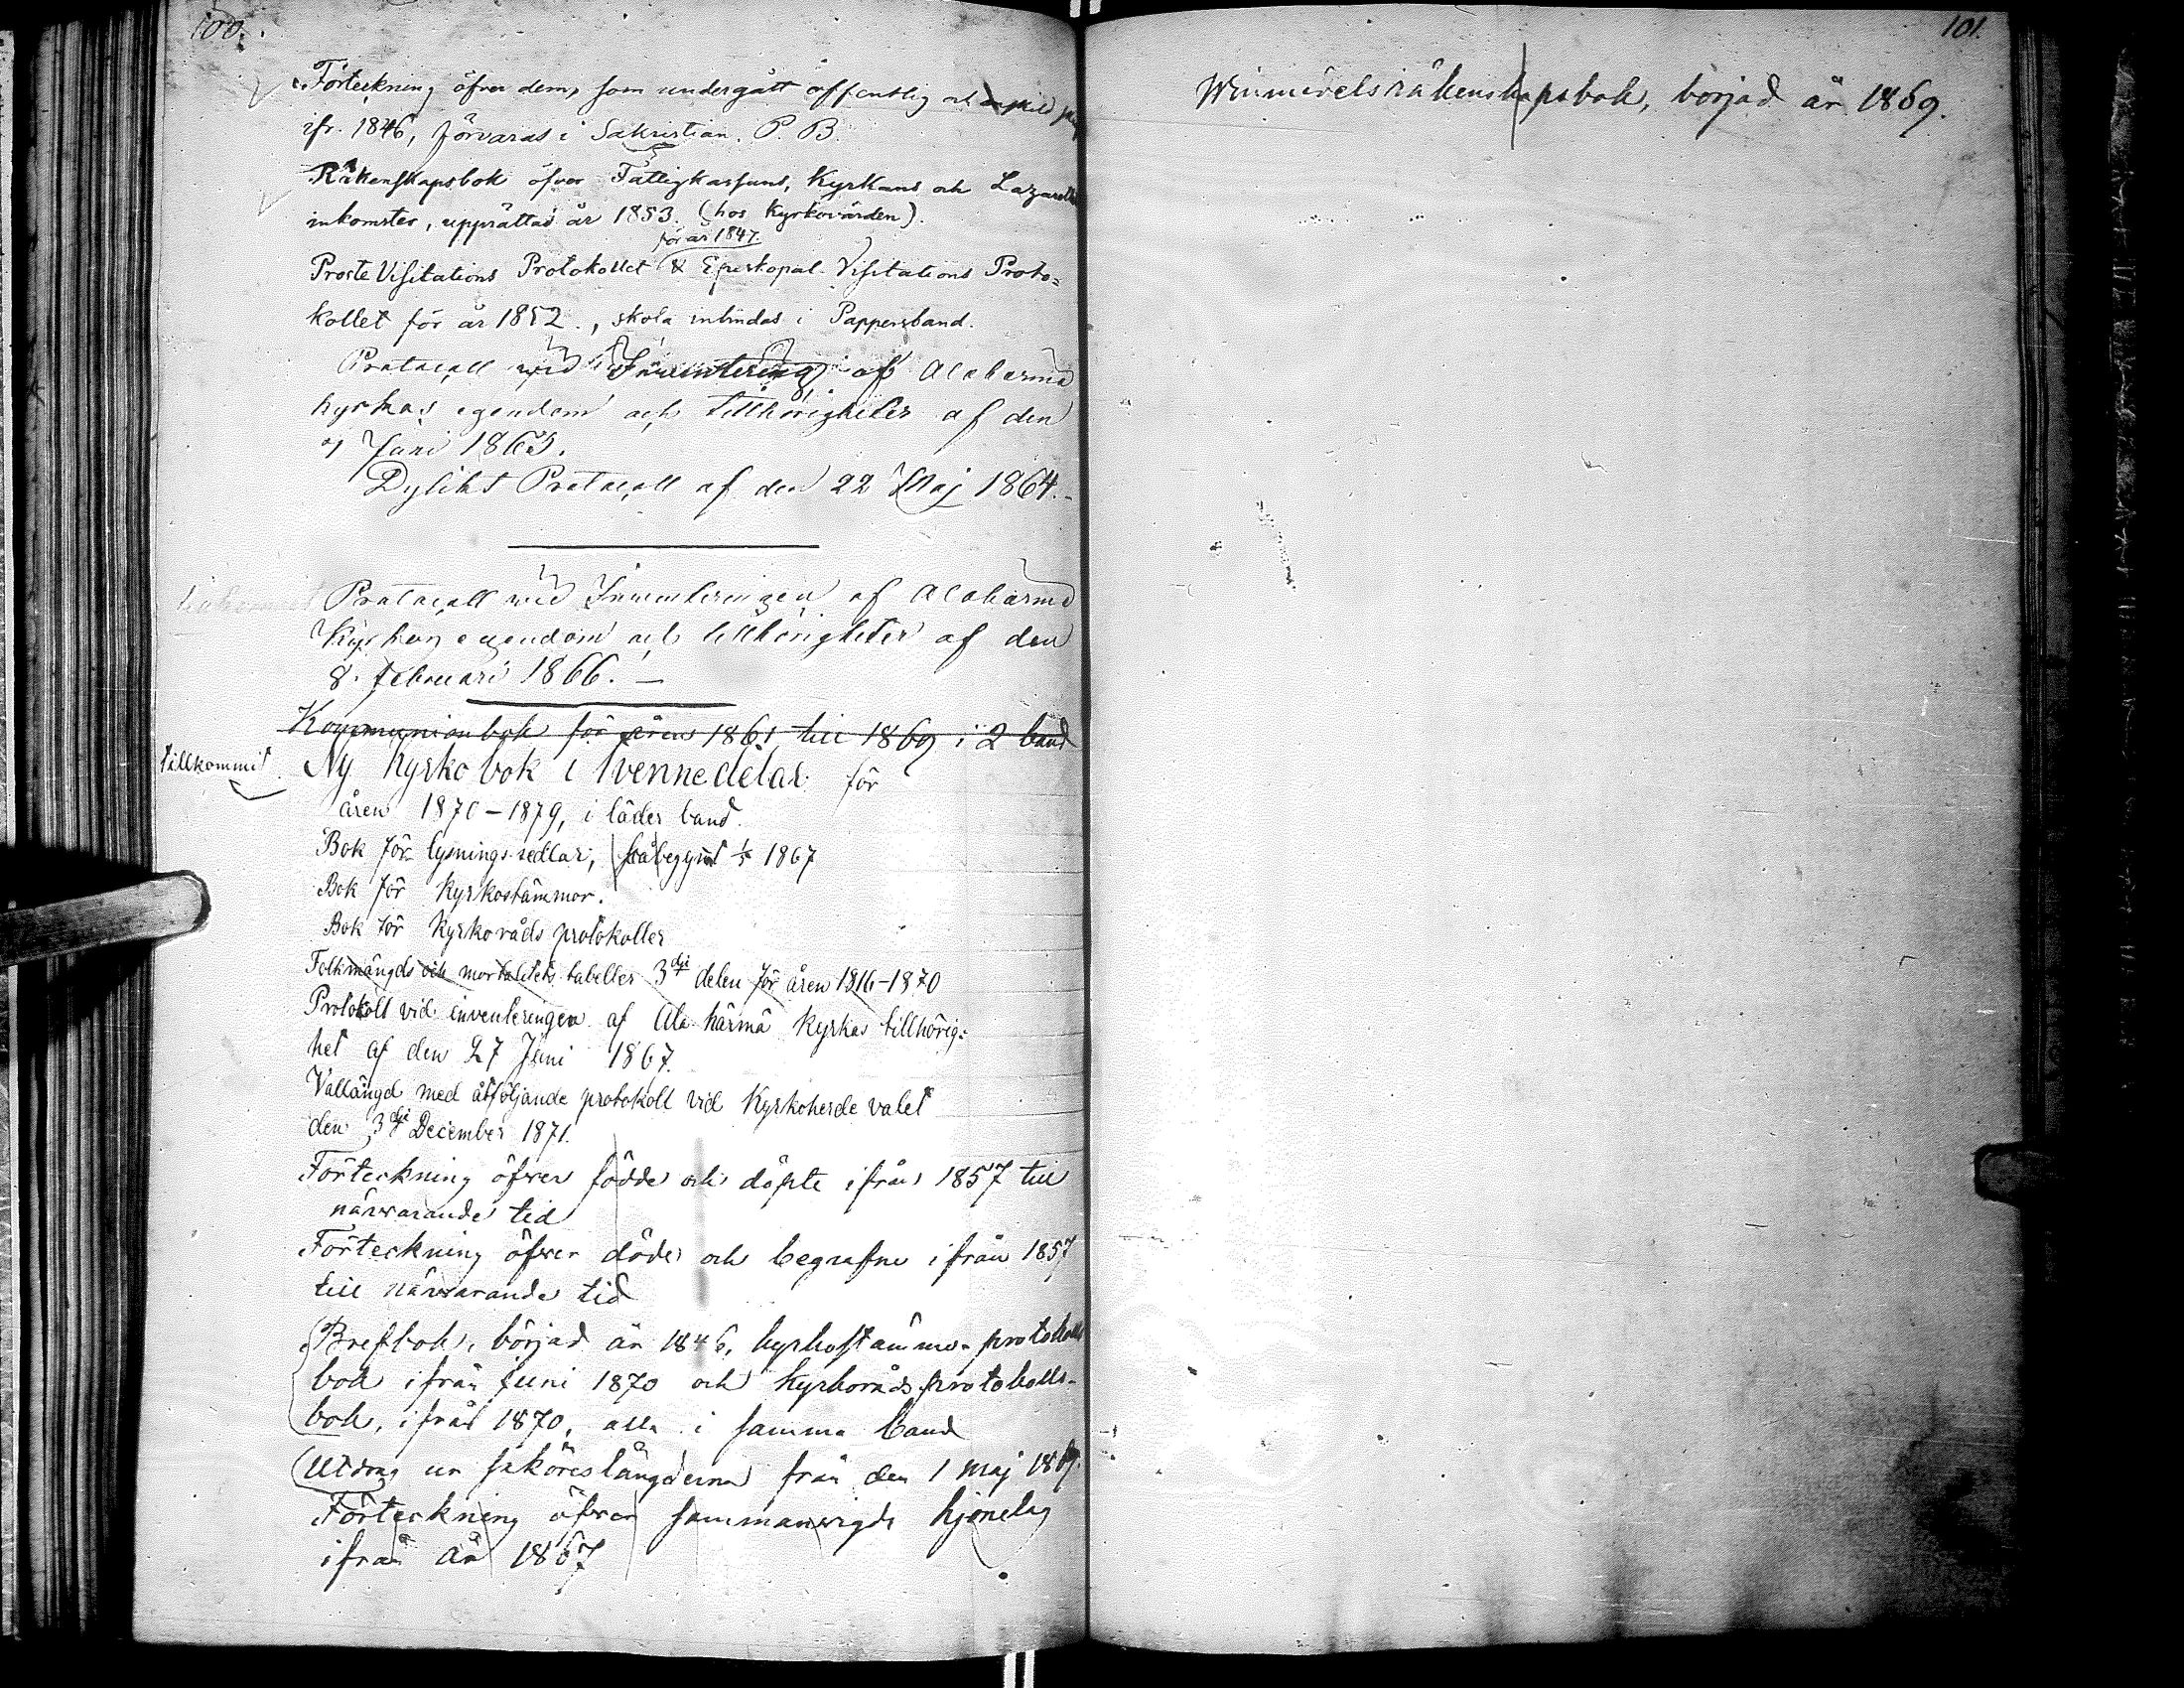 100.
Förteckning öfver dem, som undergått offentlig och enskild
ifr. 1846, förvaras i Sakristian. P. B.
Räkenskapsbok öfver Fattigkassans, Kyrkans och Lazaretts
inkomster, upprättad år 1853. (hos Kyrkovärden).
för år 1847.
Proste Visitations Protokollet & Episkopal-Visitations Proto=
kollet för år 1852., skola inbindas i Pappersband.
Protocoll wid Inventering af Alahärmä
kyrkas egendom och tillhörigheter af den
7 Juni 1863.
Dylikt Protocoll af den 22 Maj 1864.-
Protocoll wid Inventeringen af Alahärmä
Kyrkas egendom och tillhörigheter af den
8. februari 1866. —
Kommunionbok för åren 1861 till 1869 i 2 band
tillkommit Ny Kyrkobok i tvenne delar för
åren 1870-1879, i läder band.
Bok för lysnings-sedlar, påbegynt 1/5 1867
Bok för Kyrkostämmor.
Bok för Kyrkoråds protokoller
Folkmängds och mortalitets tabeller 3dje delen för åren 1816-1870
Protokoll vid inventeringen af Ala härmä Kyrkas tillhörig=
het af den 27 Juni 1867.
Vallängd med åtföljande protokoll vid Kyrkoherde valet
den 3dje December 1871.
Förteckning öfver födde och döpte ifrån 1857 till
närvarande tid
Förteckning öfver döde och begrafne ifrån 1857
till närvarande tid
Brefbok, börjad år 1846, kyrkostämmo-protokolls
bok ifrån Juni 1870 och Kyrkoråds protokolls-
bok, ifrån 1870, alla i samma band
Utdrag ur saköreslängderna från den 1 maj 1869.
Förteckning öfver sammanvigda hjonelag
ifrån år 1867
101.
Winmedelsräkenskapsbok, börjad år 1869.